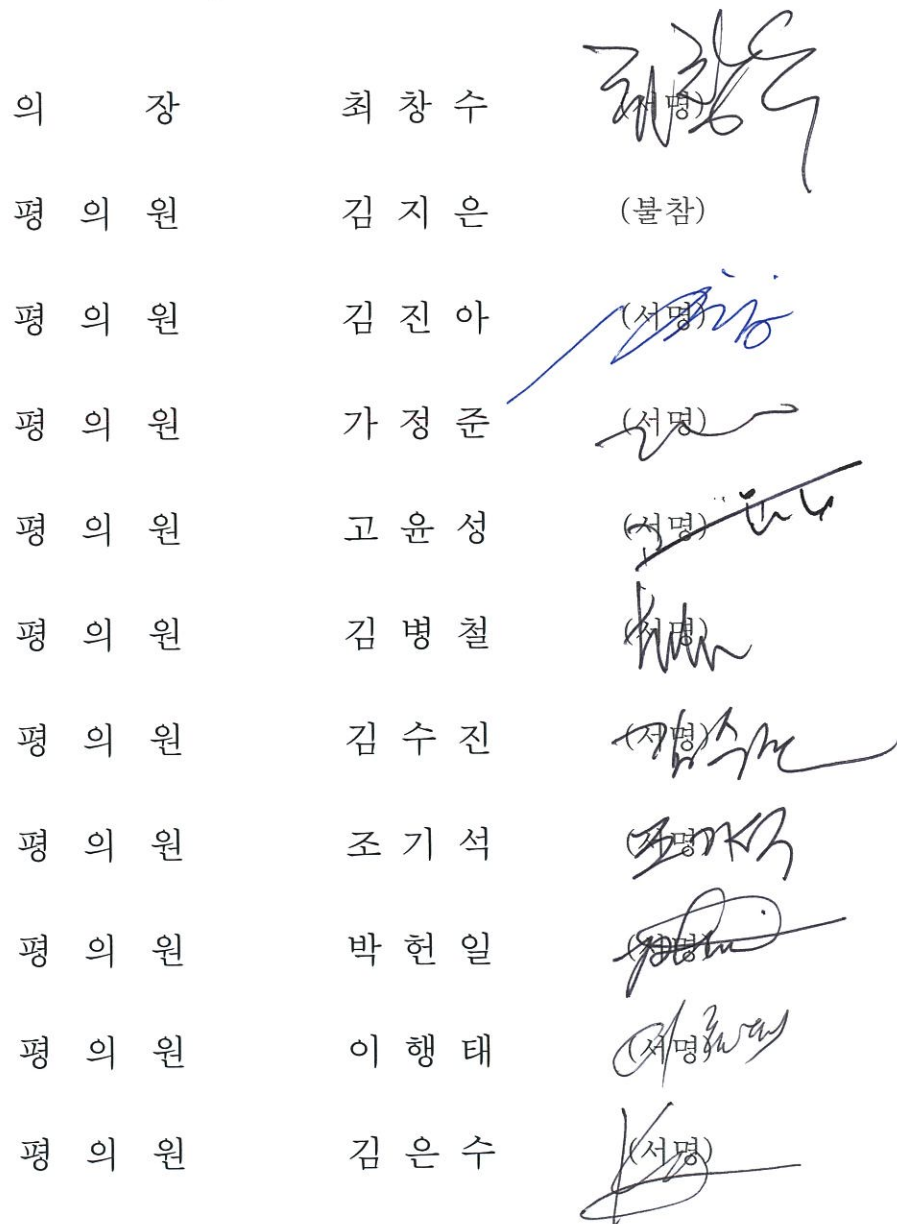 의 장 최 창 수 (서명) 최창수
평 의 원 김 지 은 (불참)
평 의 원 김 진 아 (서명)
평 의 원 가 정 준 (서명)
평 의 원 고 윤 성 (서명)
평 의 원 김 병 철 (서명)
평 의 원 김 수 진 (서명) 김수진
평 의 원 조 기 석 (서명) 조기석
평 의 원 박 헌 일 (서명)
평 의 원 이 행 태 (서명) 이행태
평 의 원 김 은 수 (서명)